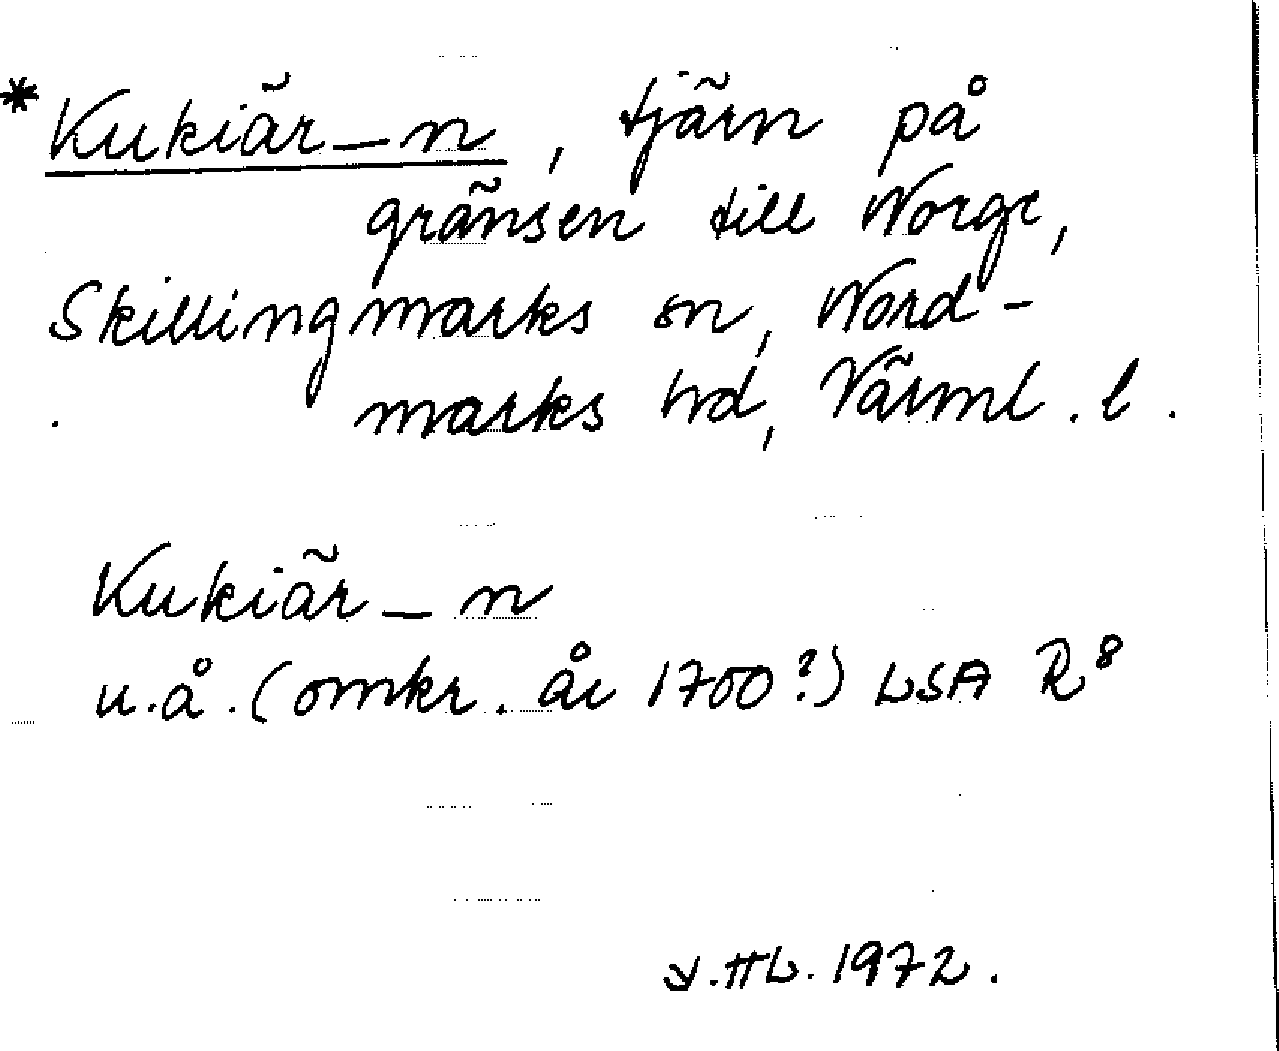 *Kukiär–n, tjärn på
gränsen till Norge,
Skillingmarks sn, Nord-
marks hd, Värml. l.
Kukiär–n
u.å. (omkr. år 1700?) LSA R8
1972.